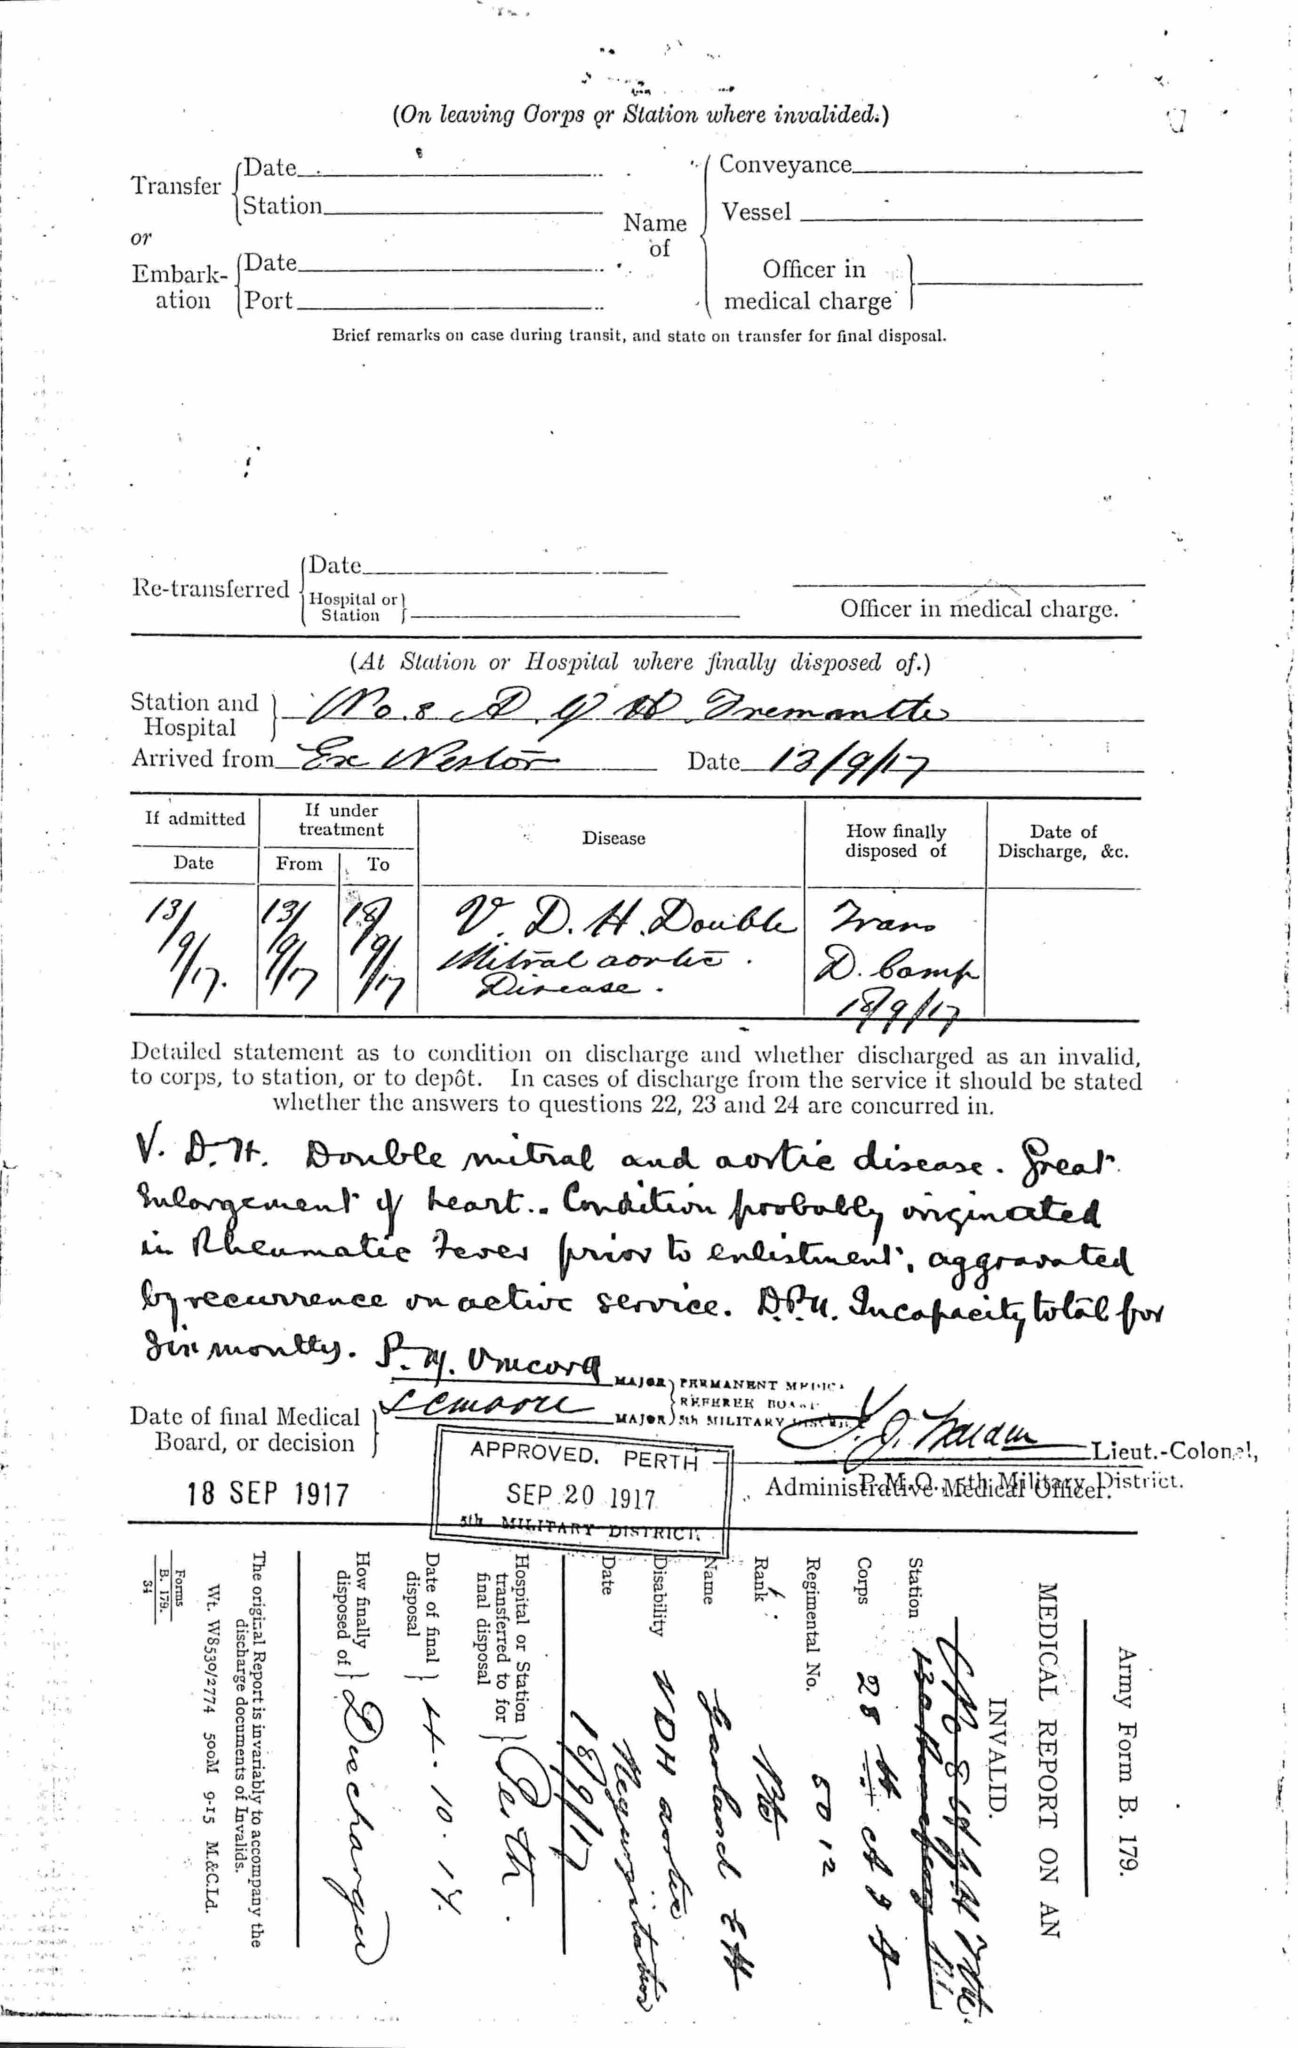 (On leaving Corps or Station where invalided.)
Transfer
Date
Station
or
Embark-
ation
Date
Port
Name
of
Conveyance
Vessel
Officer in
medical charge
Brief remarks on case during transit, and state on transfer for final disposal.
Re-transferred
Date
Hospital or
Station
Officer in medical charge.
(At Station or Hospital where finally disposed of.)
Station and
Hospital
No. 8 A G H Fremantle
Arrived from Ex Nestor Date 13/9/17
If admitted
If under
treatment
Disease
How finally
disposed of
Date of
Discharge, &c.
Date
From
To
13/9/17.
13/9/17
18/9/17
V. D. H. Double
Mitral aortic.
Disease.
Trans
D. Camp
18/9/17
Detailed statement as to condition on discharge and whether discharged as an invalid,
to corps, to station, or to depôt. In cases of discharge from the service it should be stated
whether the answers to questions 22, 23 and 24 are concurred in.
V. D. H. Double mitral and aortic disease. Great
Enlargement of heart.. Condition probably originated
in Rheumatic Fever prior to enlistment, aggravated
by recurrence on active service. D.P.U. Incapacity total for
six months.
MAJOR
MAJOR
PERMANENT MEDICA
REFEREE BOARD
5th MILITARY DISTRICT
Date of final Medical
Board, or decision
18 SEP 1917
APPROVED. PERTH
SEP 20 1917
5th MILITARY DISTRICT.
Lieut.-Colonel,
P.M.O., 5th Military District.
Administrative Medical Officer.
Army Form B. 179.
MEDICAL REPORT ON AN
INVALID.
Station
No 8 A G H Ftle.
Corps 28th A I F
Regimental No. 5012
Rank Pte
Name Garland E H
Disability VDH aortic
Regurgitation
Date 18/9/17
Hospital or Station
transferred to for
final disposal
Perth.
Date of final
disposal
4.10.17.
How finally
disposed of
Discharged
The original Report is invariably to accompany the
discharge documents of Invalids.
Wt. W8530/2774 500M 9-15 M.&C.Ld.
Forms
B. 179.
34